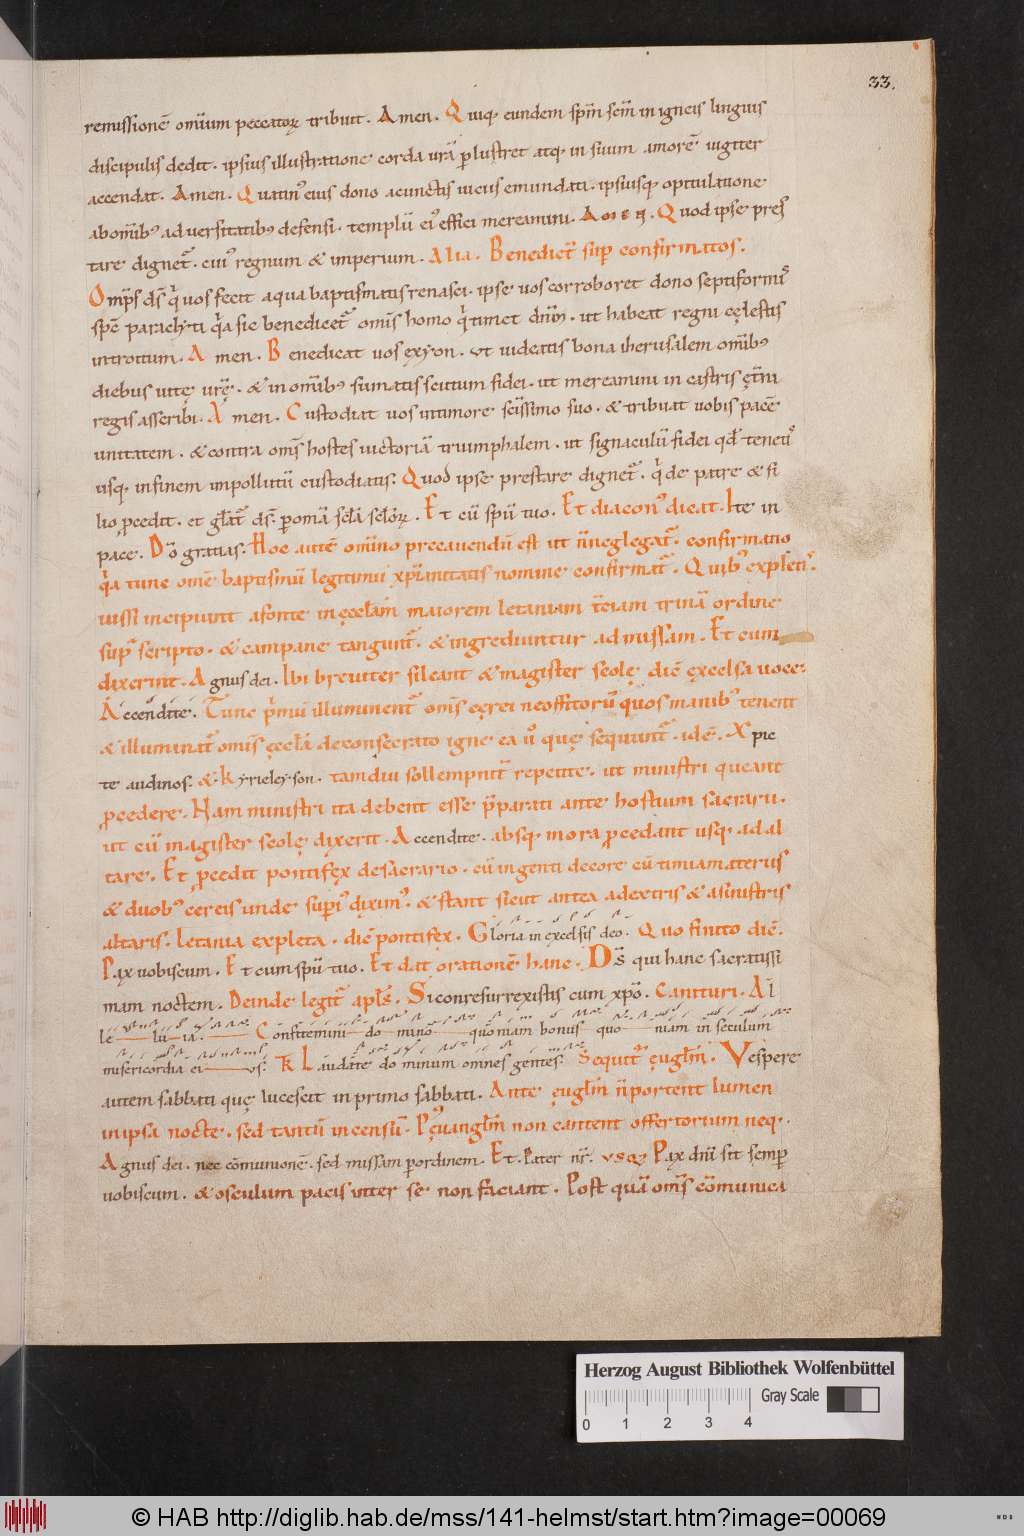 33.
remissionē om̄ium peccatoꝝ tribuit. Amen. Quiq; eundem sp̄m sc̄m in igneis linguis
discipulis dedit. ipsius illustratione corda ur̄a ꝑlustret atq; in suum amorē iugiter
accendat. Amen. Quatin᷒ eius dono acunctis uiciis emundati. ipsiusq; opitulatione
abom̄ib; aduersitatib; defensi. templū ei᷒ effici mereamini. Amen. Quod ipse pres
tare dignet᷑. cui᷒ regnum & imperium. Alia. Benedict᷑ suꝑ confirmatos.
Omp̄s ds̄ qͥ uos fecit aqua baptismatis renasci. ipse uos corroboret dono septiformis
sp̄c paraclyti qͥa sic benedicet᷑ om̄is homo qͥ timet dn̄m. ut habeat regni cęlestis
introitum. Amen. Benedicat uos exyon. ut uideatis bona iherusalem om̄ib;
diebus uitę ur̄ę. & in om̄ib; sumatis scutum fidei. ut mereamini in castris ęt̄ni
regis asscribi. Amen. Custodiat uos intimore sc̄issimo suo. & tribuat uobis pacē
unitatem. & contra om̄s hostes uictoriā triumphalem. ut signaculū fidei qd̄ tenet᷒
usq; infinem impollutū custodiatis. Quod ipse prestare dignet᷑. qͥ de patre & fi
lio ꝓcedit. et gl̄at᷑ ds̄. ꝑ omīa sc̄la sc̄loꝝ. Et cū spū tuo. Et diacon᷒ dicat. Ite in
pace. Dō gratias. Hoc autē om̄ino precauendū est ut n̄ neglegat᷑. confirmatio
qͥa tunc omē baptismū legitimū xp̄ianitatis nomine confirmat᷑. Quib; expletis.
iussi incipiunt afonte in ęccl̄am maiorem letaniam t̄ciam trinā ordine
supͣ scripto. & campane tangunt᷑. & ingrediuntur ad missam. Et cum
dixerint. Agnus dei. Ibi breuiter sileant & magister scolę dic̄ excelsa uoce.
Accendite. Tunc pͥmū illuminent᷑ om̄s cęrei neoffitorū quos manib; tenent
& illuminat᷑ omis ęccl̄a deconsecrato igne ea u᷒ quę sequunt᷑. idē. Xpic
te audinos. & Kyrieleyson. tamdiu sollempnit᷑ repetite. ut ministri queant
ꝓcedere. Nam ministri ita debent esse p̄parati ante hostium sacrarii.
ut cū magister scolę dixerit. Accendite. absq; mora ꝓcedant usq; ad al
tare. Et ꝓcedit pontifex desacrario. cū ingenti decore cū timiamaterus
& duob; cereis unde supͥ diximus. & stant sicut antea adextris & asinistris
altaris. Letania expleta. dic̄ pontifex. Gloria in excelsis deo. Quo finito dic̄.
Pax uobiscum. Et cum spū tuo. Et dat orationē hanc. Ds̄ qui hanc sacratissi
mam noctem. Deinde legit᷑ apl̄s. Si conresurrexistis cum xpō. Cantturi. Al
le lu ia. Confitemini do mino quoniam bonus quo niam in seculum
misericordia ei us. Laudate do minum omnes gentes. Sequit᷑ euḡlm̄. Vespere
autem sabbati quę lucescit in primo sabbati. Ante euḡlm̄ n̄ portent lumen
in ipsa nocte. sed tantū incensū. P᷒ ęuanglm̄ non cantent offertorium neq;
Agnus dei. nec cōmunionē. sed missam ꝑordinem. Et. Pater nr̄. usq; Pax dn̄i sit semꝑ
uobiscum. & osculum pacis inter se non faciant. Post quā om̄s cōmunica
Herzog August Bibliothek Wolfenbüttel
Gray Scale
0 1 2 3 4
© HAB http://diglib.hab.de/mss/141-helmst/start.htm?image=00069